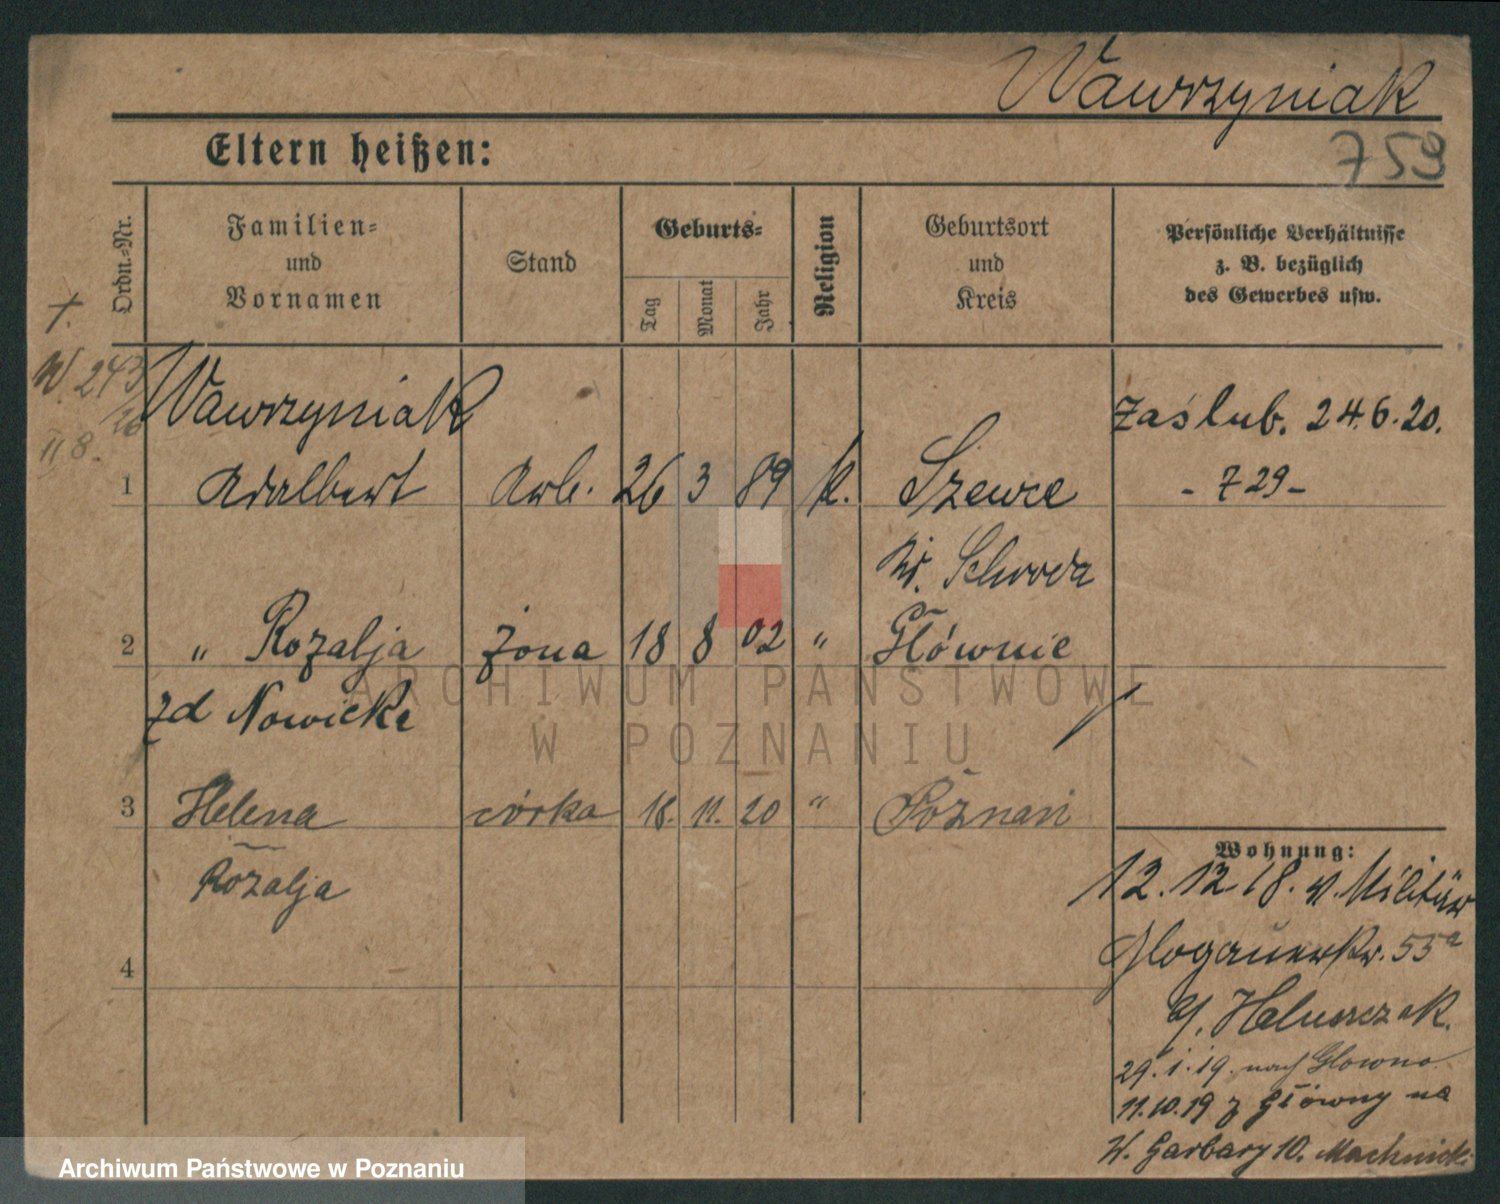 Wawrzyniak
Eltern heißen:
759
Ordn.-Nr.
Familien-
und
Vornamen
Stand
Geburts-
Tag
Monat
Jahr
Religion
Geburtsort
und
Kreis
Persönliche Verhältnisse
z. B. bezüglich
des Gewerbes usw.
†.
W. 243/20
II 8.
Wawrzyniak
zaślub. 24.6.20.
1 Adalbert Arb. 26 3 89 k. Szewce - 729 -
Kr. Schroda
2 " Rozalja żona 18 8 02 " Głównie
zd Nowicke
3 Helena córka 18. 11. 20 " Poznań
Rozalja
4
Wohnung:
12. 12 18. v. Militär
Glogauerstr. 55a
b/. Haluszczak.
29.1.19. nach Glowno
11.10.19 z Główny na
W. Garbary 10. Machnicki
ARCHIWUM PAŃSTWOWE
W POZNANIU
Archiwum Państwowe w Poznaniu